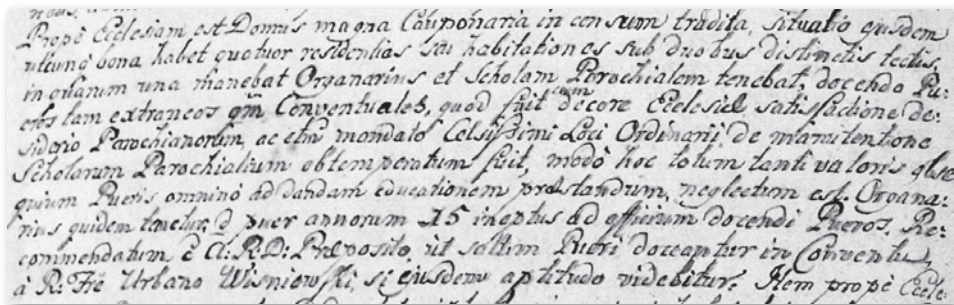 Propè Ecclesiam est Domus magna Cauponaria in censum tradita, Situatio ejusdem
utcunq bona habet quatuor residentias seu habitationes sub duobus distinctis tectis,
in quarum una manebat Organarius et Scholam Parochialem tenebat, docendo Pu:
eros tam extraneos qm Conventuales, quod fuit cum decore Ecclesiæ satisfactione de:
siderio Parochianorum, ac etm mandato Celsissimi Loci Ordinarij de manutentione
Scholarum Parochialium obtemperatum fuit, modò hoc totum tanti valoris obse
quium Pueris omnino ad dandam educationem præstandum, neglectum est. Organa:
rius quidem tenetur, d puer annorum 15 ineptus ad officium docendi Pueros. Re:
commendatum è A. R. D. Præposito, ut saltim Pueri doceantur in Conventu,
à R. Frē Urbano Wisniewski, si ejusdem aptitudo videbitur. Item propè Eccle: